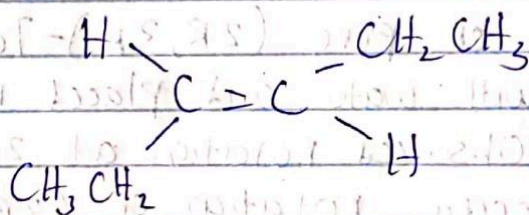 H CH₂ CH₃
C = C
CH₃ CH₂ H